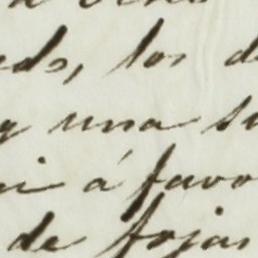 eds, los d
y una su
ni á favo
de fojas